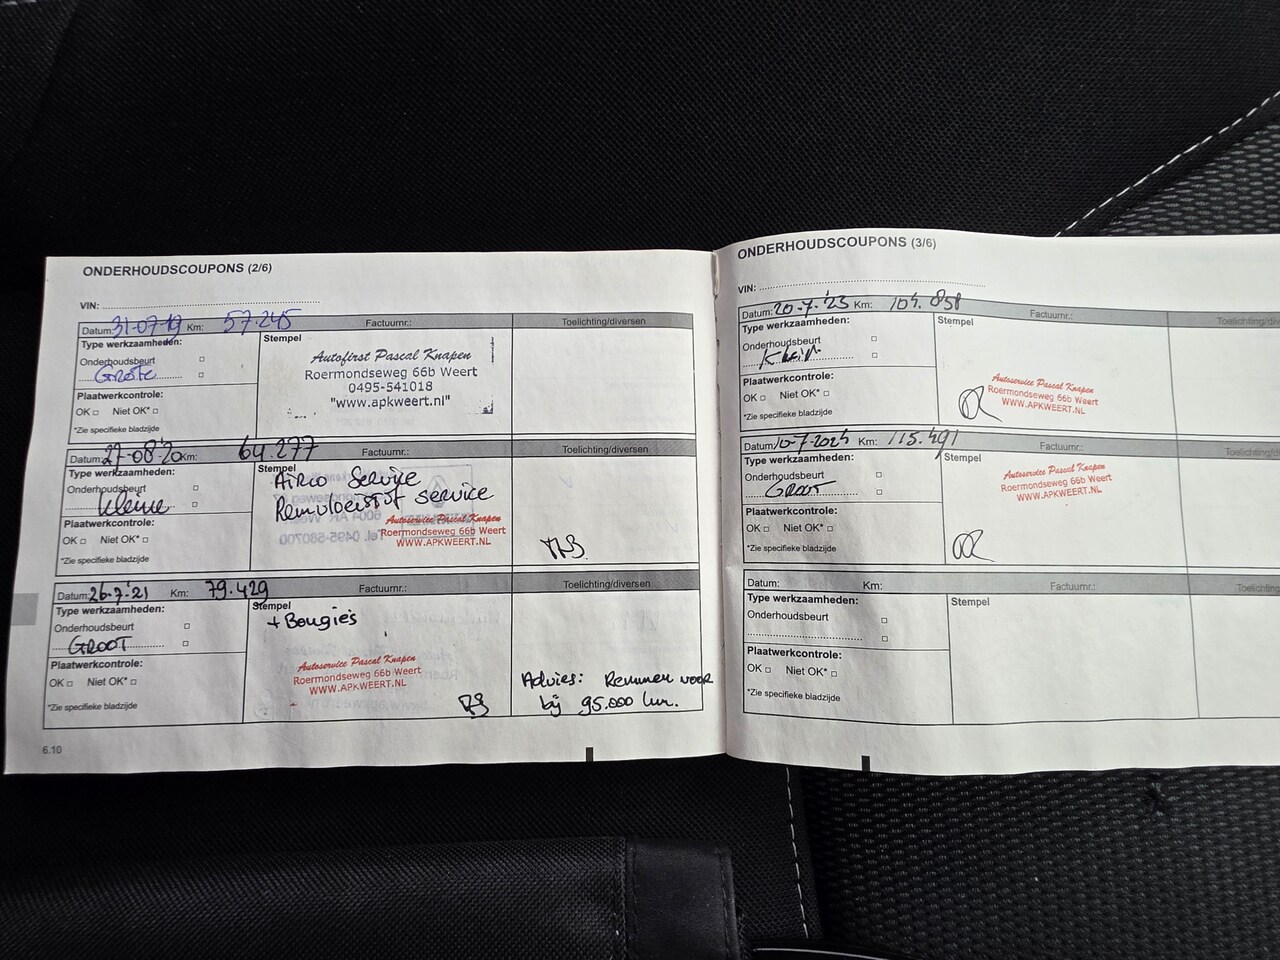 ONDERHOUDSCOUPONS (2/6)
VIN:
Datum: 31-07-19 Km: 57.245 Factuurnr.: Toelichting/diversen
Type werkzaamheden: Stempel
Onderhoudsbeurt
Grote
Plaatwerkcontrole:
OK Niet OK*
*Zie specifieke bladzijde
Autofirst Pascal Knapen
Roermondseweg 66b Weert
0495-541018
"www.apkweert.nl"
Datum: 27-08-'20 Km: 64.277 Factuurnr.: Toelichting/diversen
Type werkzaamheden: Stempel
Onderhoudsbeurt
Kleine
Plaatwerkcontrole:
OK Niet OK*
*Zie specifieke bladzijde
Airco Service
Remvloeistof service
Autoservice Pascal Knapen
Roermondseweg 66b Weert
WWW.APKWEERT.NL
Datum: 26-7-'21 Km: 79.429 Factuurnr.: Toelichting/diversen
Type werkzaamheden: Stempel
Onderhoudsbeurt
GROOT
Plaatwerkcontrole:
OK Niet OK*
*Zie specifieke bladzijde
+ Bougies
Autoservice Pascal Knapen
Roermondseweg 66b Weert
WWW.APKWEERT.NL
Advies: Remmen voor
bij 95.000 km.
6.10
ONDERHOUDSCOUPONS (3/6)
VIN:
Datum: 20-7-'23 Km: Factuurnr.: Toelichting/di
Type werkzaamheden: Stempel
Onderhoudsbeurt
Klein
Plaatwerkcontrole:
OK Niet OK*
*Zie specifieke bladzijde
Autoservice Pascal Knapen
Roermondseweg 66b Weert
WWW.APKWEERT.NL
Datum: 10-7-2024 Km: 115.491 Factuurnr.: Toelichting/d
Type werkzaamheden: Stempel
Onderhoudsbeurt
GROOT
Plaatwerkcontrole:
OK Niet OK*
*Zie specifieke bladzijde
Autoservice Pascal Knapen
Roermondseweg 66b Weert
WWW.APKWEERT.NL
Datum: Km: Factuurnr.: Toelichting
Type werkzaamheden: Stempel
Onderhoudsbeurt
Plaatwerkcontrole:
OK Niet OK*
*Zie specifieke bladzijde